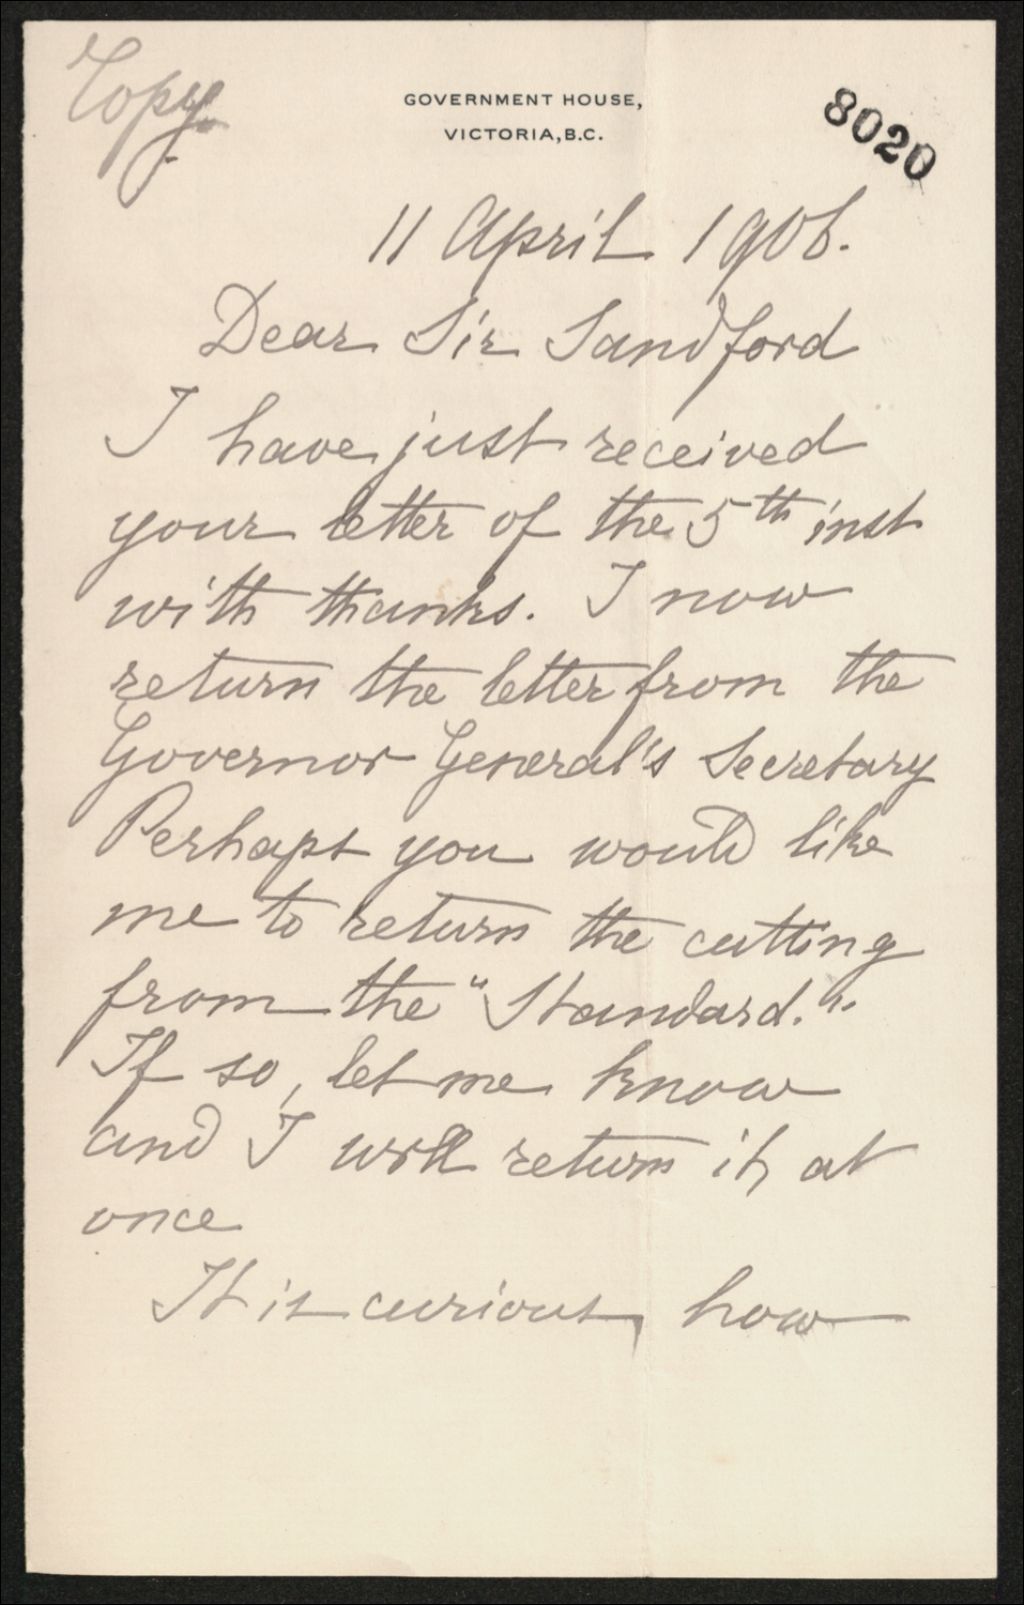 Copy.
GOVERNMENT HOUSE,
VICTORIA, B.C.
8020
11 April 1906.
Dear Sir Sandford
I have just received
your letter of the 5th inst
with thanks. I now
return the letter from the
Governor General's Secretary
Perhaps you would like
me to return the cutting
from the "Standard."
If so, let me know
and I will return it, at
once
It is curious, how